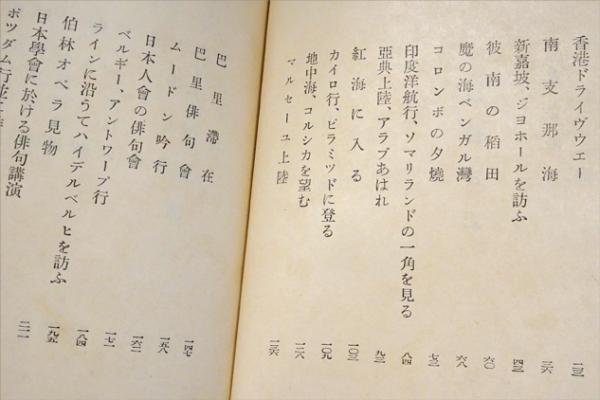 香港ドライヴウエー
南支那海 二六
新嘉坡、ジヨホールを訪ふ 四三
彼南の稻田 六〇
魔の海ベンガル灣 六八
コロンボの夕燒 七三
印度洋航行、ソマリランドの一角を見る 八四
亞典上陸、アラブあはれ 九三
紅海に入る 一〇三
カイロ行、ピラミツドに登る 一〇九
地中海、コルシカを望む
マルセーユ上陸
巴里滯在 一四七
巴里俳句會 一五八
ムードン吟行 一六二
日本人會の俳句會 一七一
ベルギー、アントワープ行 一八四
ラインに沿うてハイデルベルヒを訪ふ 一九五
伯林オペラ見物 二一一
日本學會に於ける俳句講演
ポツダム行